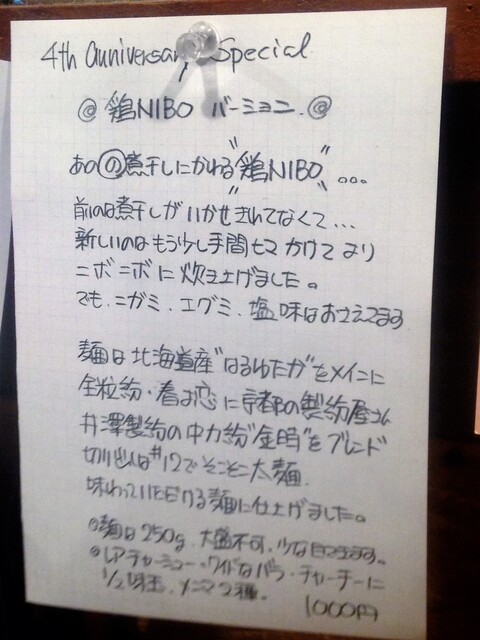 4th anniversary Special
@ 鶏NIBO バーミョン.@
あの の 煮干しにかわる "鶏NIBO" 。。。
前のは煮干しがいかせきれてなくて...
新しいのはもう少し手間ヒマかけてより
ニボニボに炊き上げました。
でも、ニガミ、エグミ、塩味はおさえてます
麺は北海道産"はるゆたか"をメインに
全粒紛・春よ恋に京都の製紛屋さん
井澤製紛の中力紛"金明"をブレンド
切り出しは#12でそこそこ太麺.
味わっていただける麺に仕上げました。
◎麺は250g. 大盛不可. 少な目できます。
◎レアチャーシュー・ワイドなバラ・チャーシューに
1/2味玉、メンマ2種.
1000円